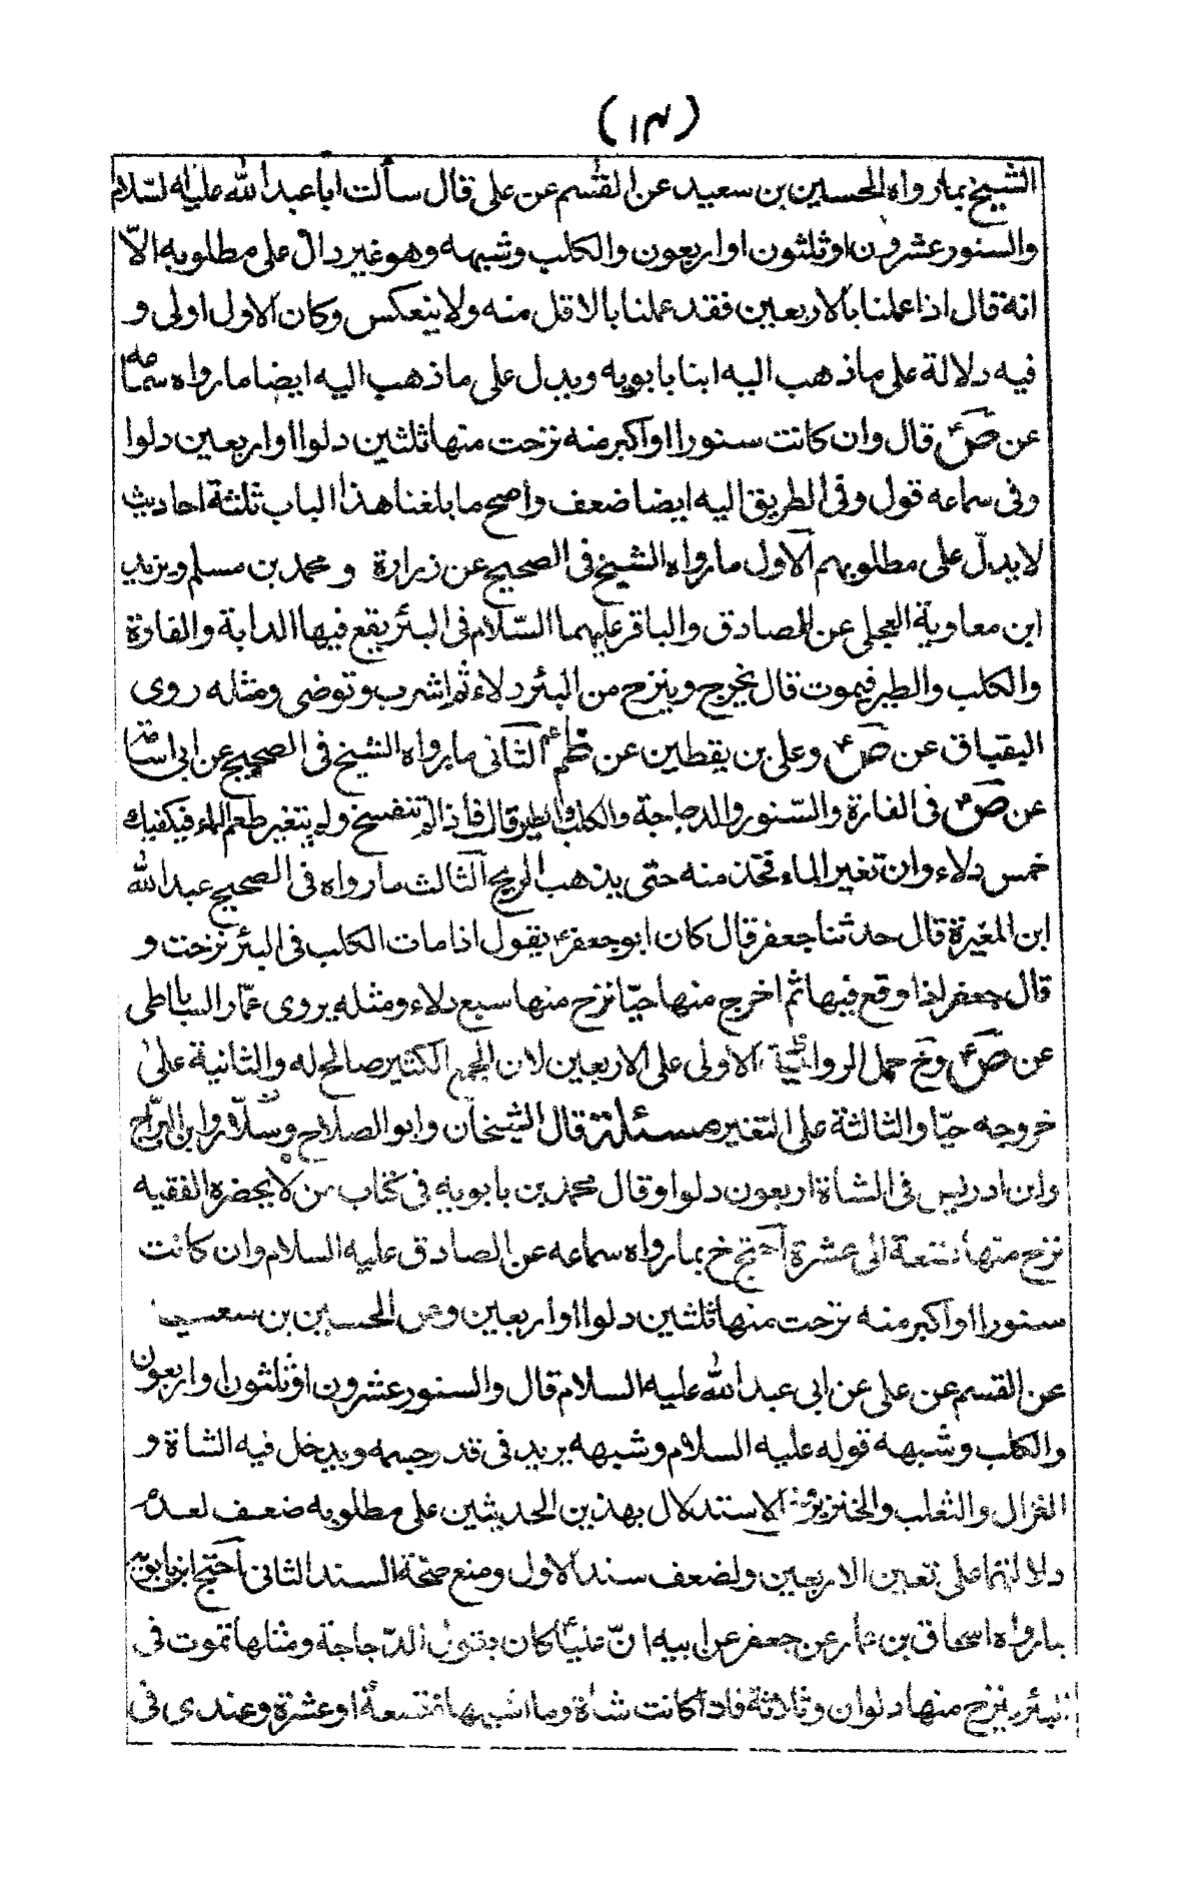 (١٣)
الشيخ بما رواه الحسين بن سعيد عن القسم عن على قال سألت ابا عبد الله عليه السلام
والسنور عشرون او ثلثون او اربعون والكلب وشبهه وهو غير دال على مطلوبه الاّ
انه قال اذا عملنا بالاربعين فقد عملنا بالاقل منه ولا ينعكس وكان الاول اولى و
فيه دلالة على ما ذهب اليه ابنا بابويه ويدل على ما ذهب اليه ايضا ما رواه سماعه
عن ص ع قال وان كانت سنورا او اكبر منه نزحت منها ثلثين دلوا او اربعين دلوا
وفى سماعه قول وفى الطريق اليه ايضا ضعف واصح ما بلغنا هذا الباب ثلثة احاديث
لا يدلّ على مطلوبهم الاول ما رواه الشيخ فى الصحيح عن زرارة و محمد بن مسلم ويزيد
ابن معاوية العجلى عن الصادق والباقر عليهما السّلام فى البئر يقع فيها الدابة والفارة
والكلب والطير فيموت قال يخرج وينزح من البئر دلاء ثم اشرب وتوضى ومثله روى
البقباق عن ص ع وعلى بن يقطين عن ظم ع الثانى ما رواه الشيخ فى الصحيح عن ابى اسامة
عن ص ع فى الفارة والسّنور والدجاجة والكلب والطير قال فأذا لم تنفسخ ولم يتغير طعم الماء فيكفيك
خمس دلاء وان تغير الماء فخذ منه حتى يذهب الريح الثالث ما رواه فى الصحيح عبد الله
ابن المغيرة قال حدثنا جعفر قال كان ابو جعفر ع يقول اذا مات الكلب فى البئر نزحت و
قال جعفر اذا وقع فيها ثم اخرج منها حيّا نزح منها سبع دلاء ومثله يروى عمّار الساباطى
عن ص ع وتح حمل الرواية الاولى على الاربعين لان الجمع الكثير صالح له والثانية على
خروجه حيّا والثالثة على التغير مسئلة قال الشيخان وابو الصلاح وسلّار وابن البرّاج
وابن ادريس فى الشاة اربعون دلوا وقال محمد بن بابويه فى كتاب من لا يحضره الفقيه
نزح منها تسعة الى عشرة احتج خ بما رواه سماعه عن الصادق عليه السلام وان كانت
سنورا او اكبر منه نزحت منها ثلثين دلوا او اربعين وعن الحسين بن سعيد
عن القسم عن على عن ابى عبد الله عليه السلام قال والسنور عشرون او ثلثون او اربعون
والكلب وشبهه قوله عليه السلام وشبهه يريد فى قدر جسمه ويدخل فيه الشاة و
الغزال والثعلب والخنزير الاستدلال بهذين الحديثين على مطلوبه ضعف لعدم
دلالتهما على تعين الاربعين ولضعف سند الاول ومنع صحّة السند الثانى احتج ابن بابويه
بما رواه اسحاق بن عمار عن جعفر عن ابيه انّ عليّا ع كان يقول الدّجاجة ومثلها تموت فى
البئر ينزح منها دلوان وثلاثة فاذا كانت شاة وما اشبهها فتسعة او عشرة وعندى فى